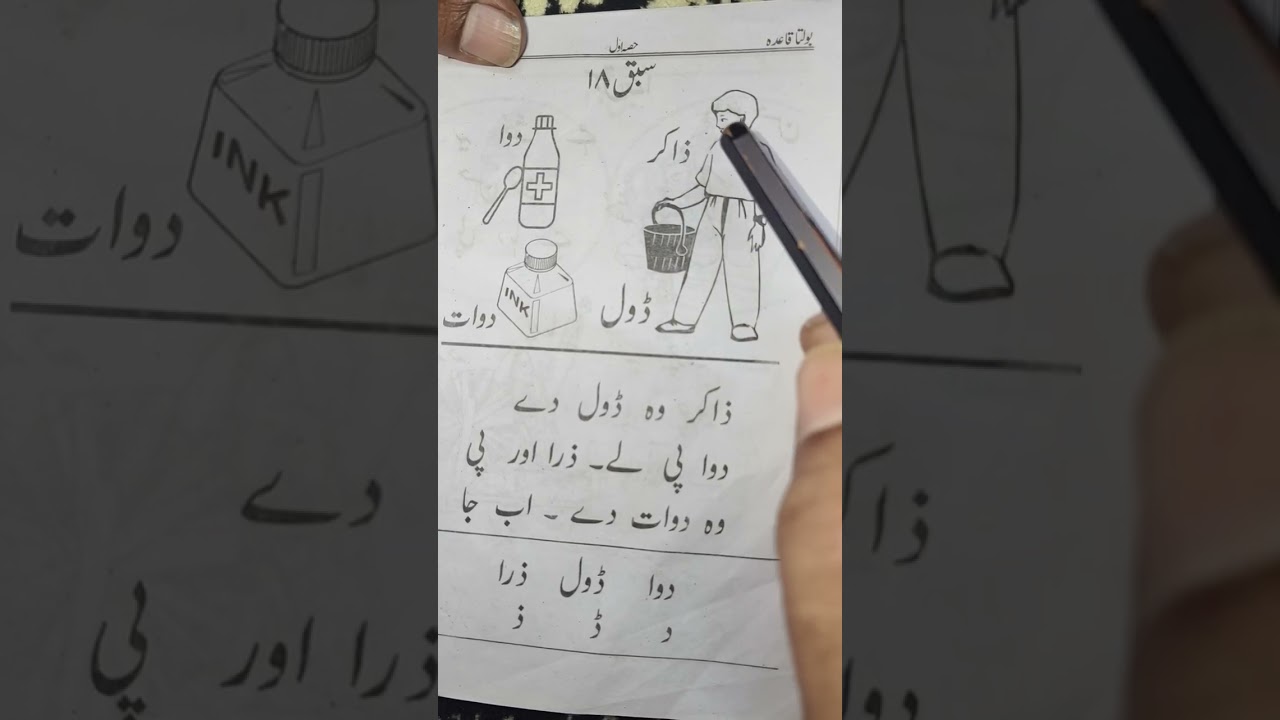 بولتا قاعدہ
حصہ اول
سبق ۱۸
ذاکر
دوا
ڈول
INK
دوات
ذاکر وہ ڈول دے
دوا پی لے۔ ذرا اور پی
وہ دوات دے ۔ اب جا
دوا ڈول ذرا
د ڈ ذ